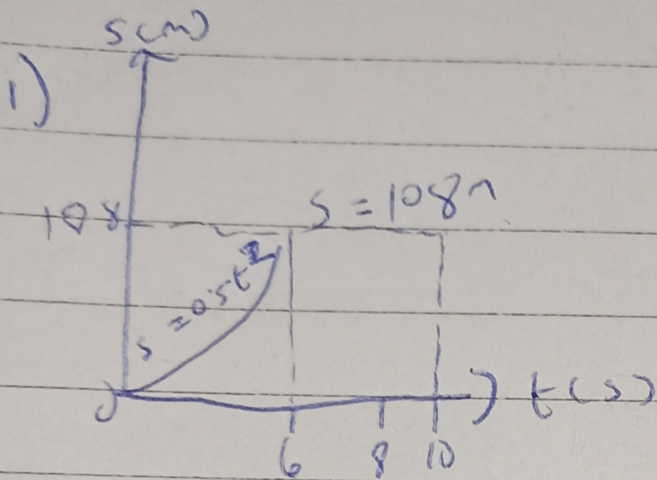 s(m)
1)
108
s = 108m
s = 0.5t³
0
t(s)
6 8 10